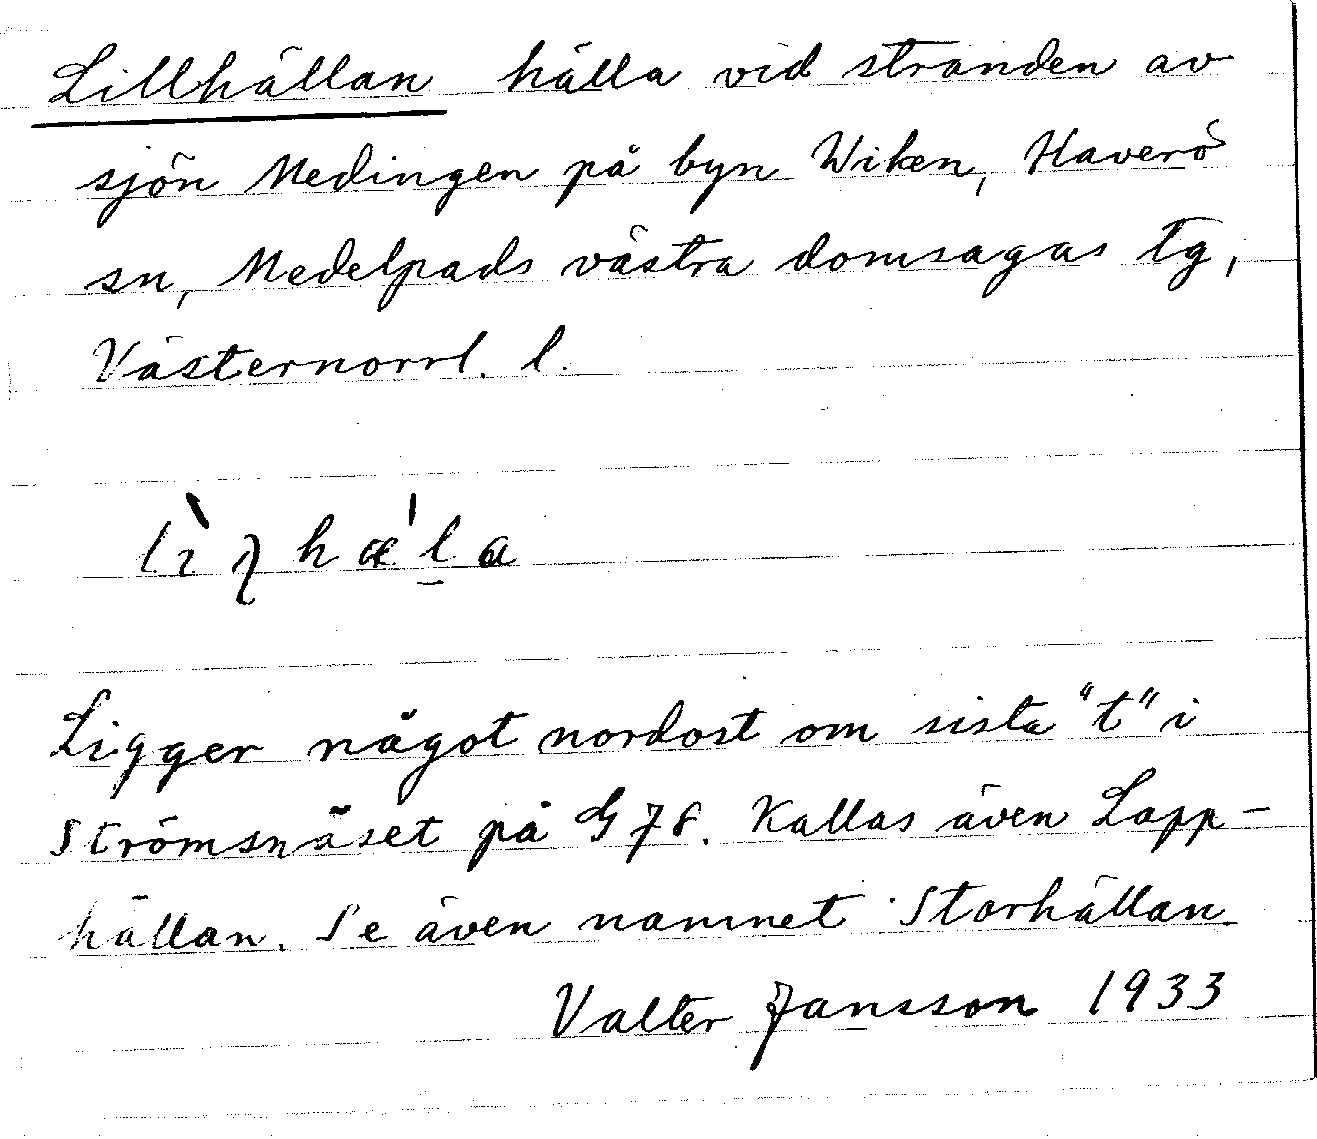 Lillhällan hälla vid stranden av
sjön Medingen på byn Wiken, Haverö
sn, Medelpads västra domsagas tg,
Västernorrl. l.
Ligger något nordost om sista "t" i
Strömsnäset på G 78. Kallas även Lapp-
hällan. Se även namnet Storhällan
Valter Jansson 1933